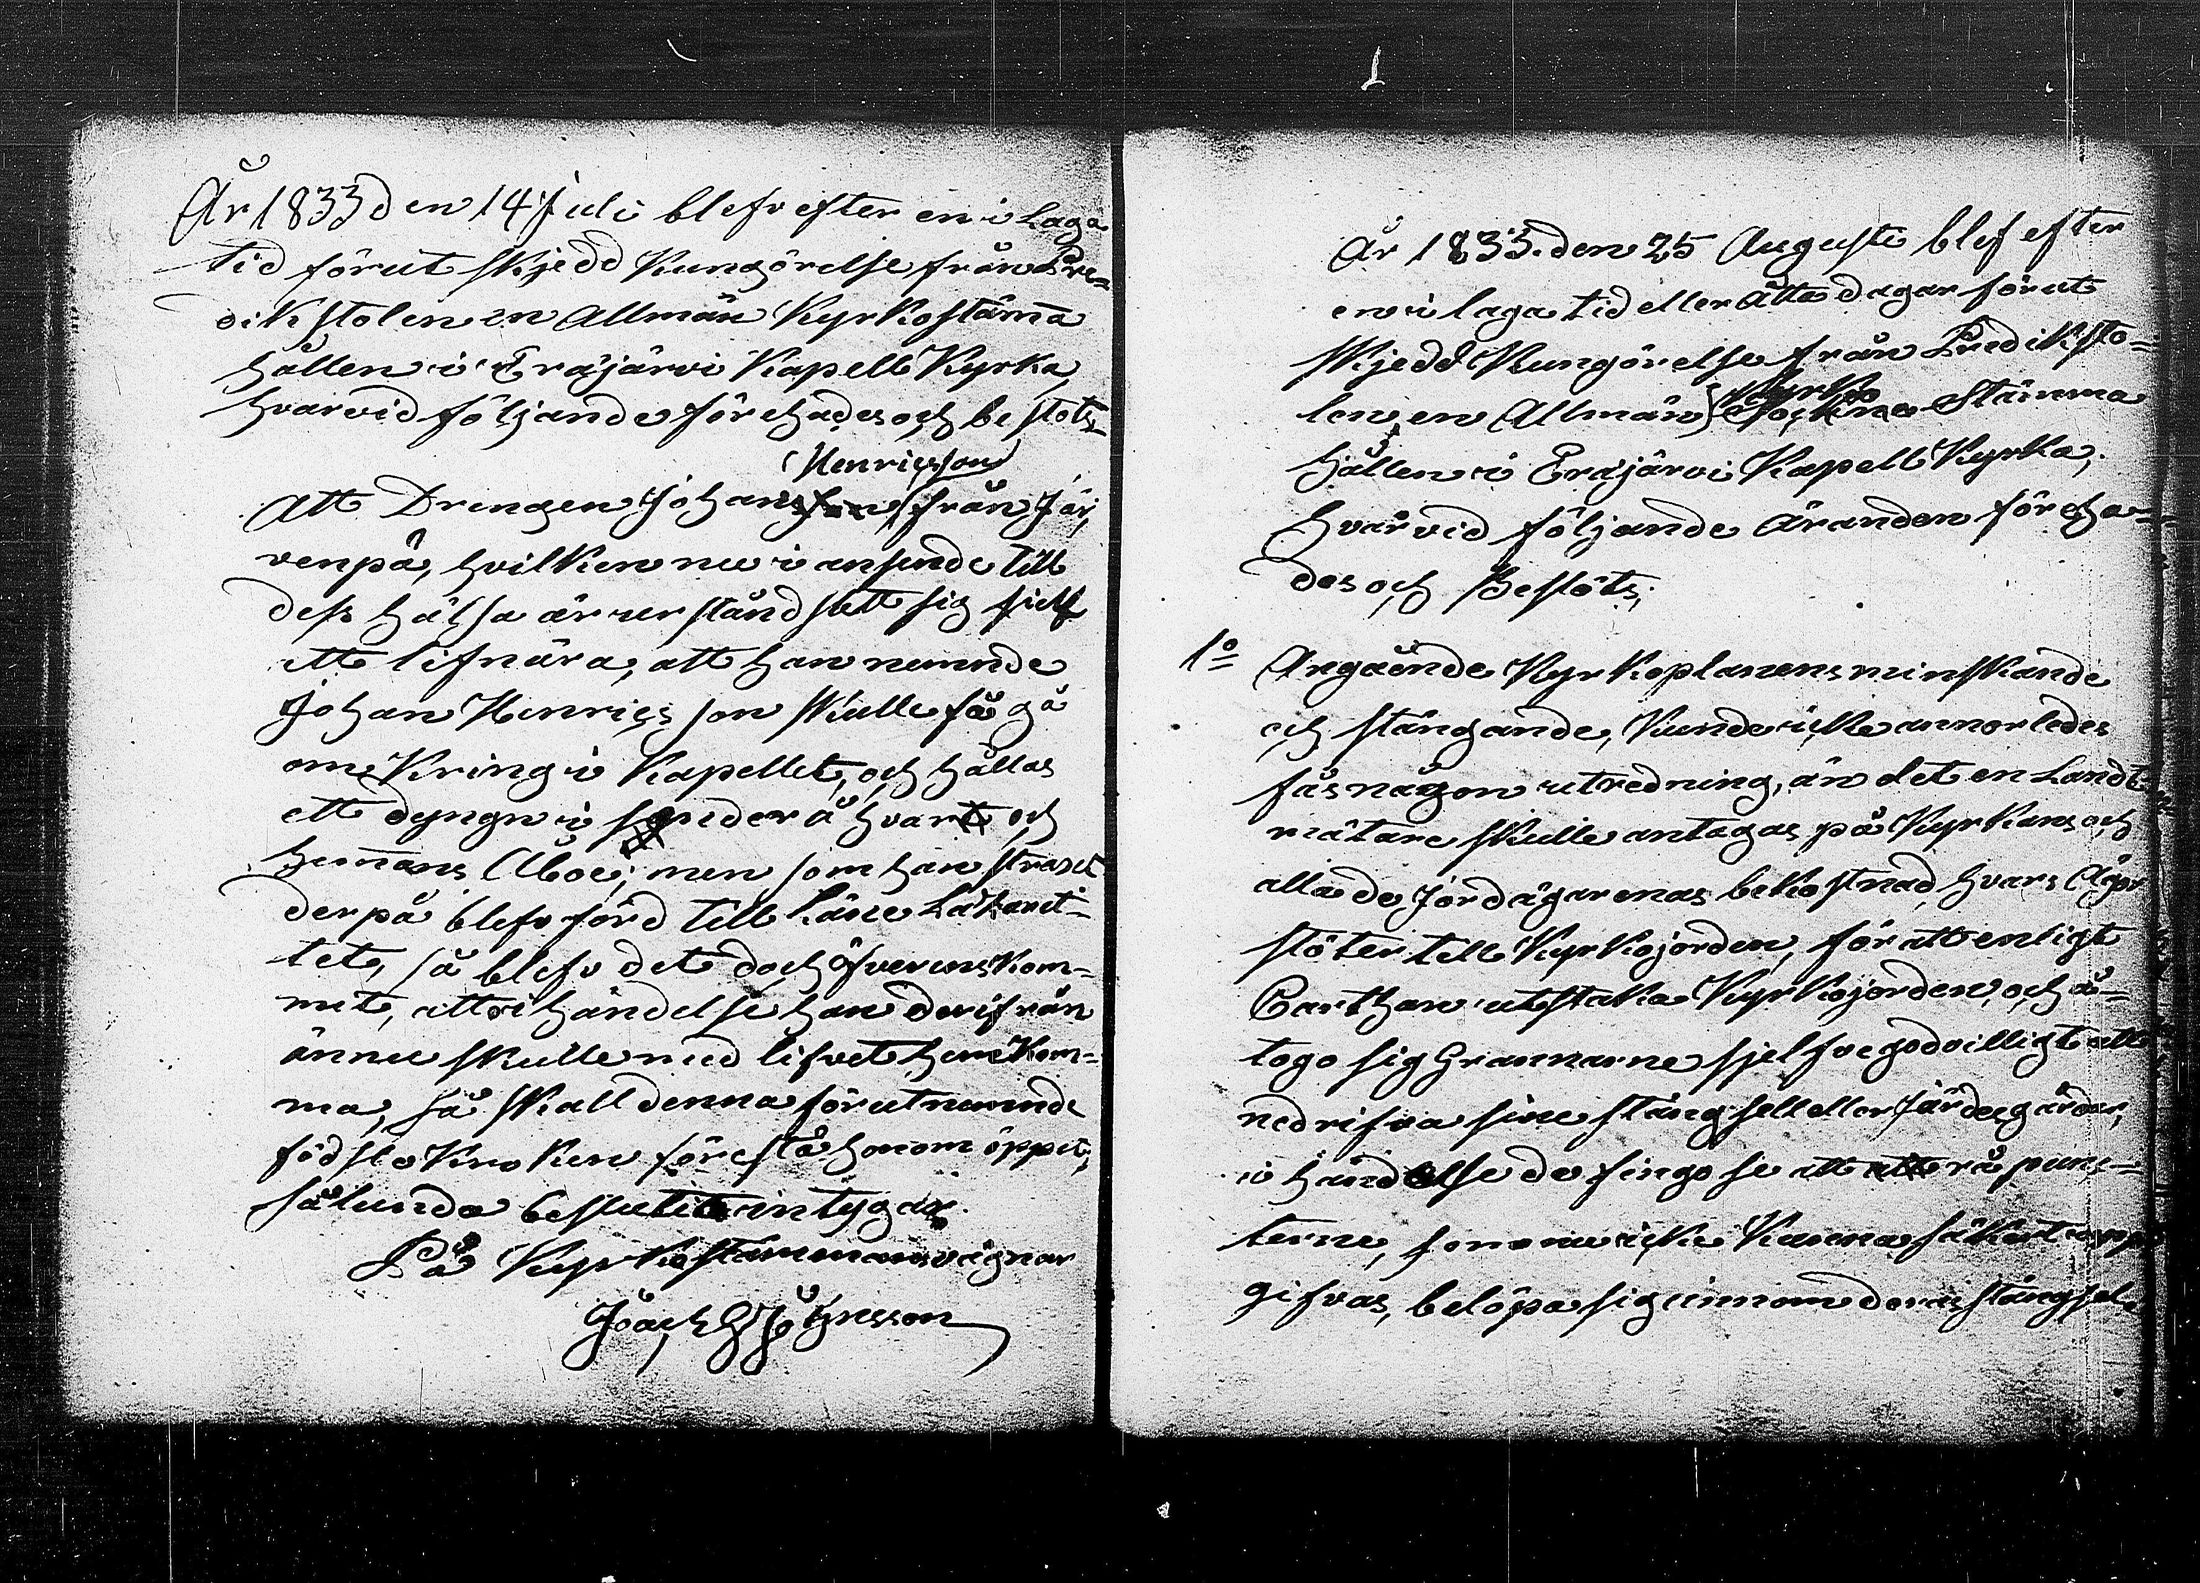 År 1833 den 14 Juli blefv efter en i Laga
tid förut skjedd Kungörelse från Pre=
dikstolen en Allmän Kyrkostäm̄a
hållen i Eräjärvi Kapell Kyrka,
hvarvid följande förehades och beslöts.
Henricsson
Att Drengen Johan från Jär,
venpä, hvilken nu i anseende till
dess hälsa är ur stånd satt sig sielf
att lifnära, att han nemnde
Johan Henricsson skulle få gå
omkring i Kapellet, och hållas
ett dyngn i sender å hvart och
hem̄ans Åboe; men som han straxt
derpå blefv förd till Läne Lazaret=
tet, så blefv det doch öfverenskom=
mit, att i händelse han derifrån
ännu skulle med lifvet hemkom=
ma, så skall denna förutnemnde
födslokroken förestå honom öppet;
sålunda beslutit intygar.
På Kyrkostämmans vägnar
Joach G Jöhnsson
1
År 1833. den 25 Augusti blef efter
en i laga tid eller åtta dagar förut
skjedd Kungörelse från Prediksto=
Kyrko
len, en Allmän Sockne Stämma
hållen i Eräjärvi Kapell Kyrka,
hvarvid följande äranden föreha=
des och Beslöts;
1º Angående Kyrkoplanens minskande
och stängande, kunde icke annorledes
fås någon utredning, än det en Landt=
mätare skulle antagas på Kyrkans och
alla de Jordägarenas bekostnad, hvars Ägor
stöter till Kyrkojorden, för att enligt
Carthan utstaka Kyrkojorden, och å=
togo sig Grannarne sjelfve godvilligt att
nedrifva sine stängsell eller Järdesgårdar,
i händelse de fingo se att råpunc=
terne, som nu icke kunna säkert upp
gifvas, belöpa sig innom deras stängsel,